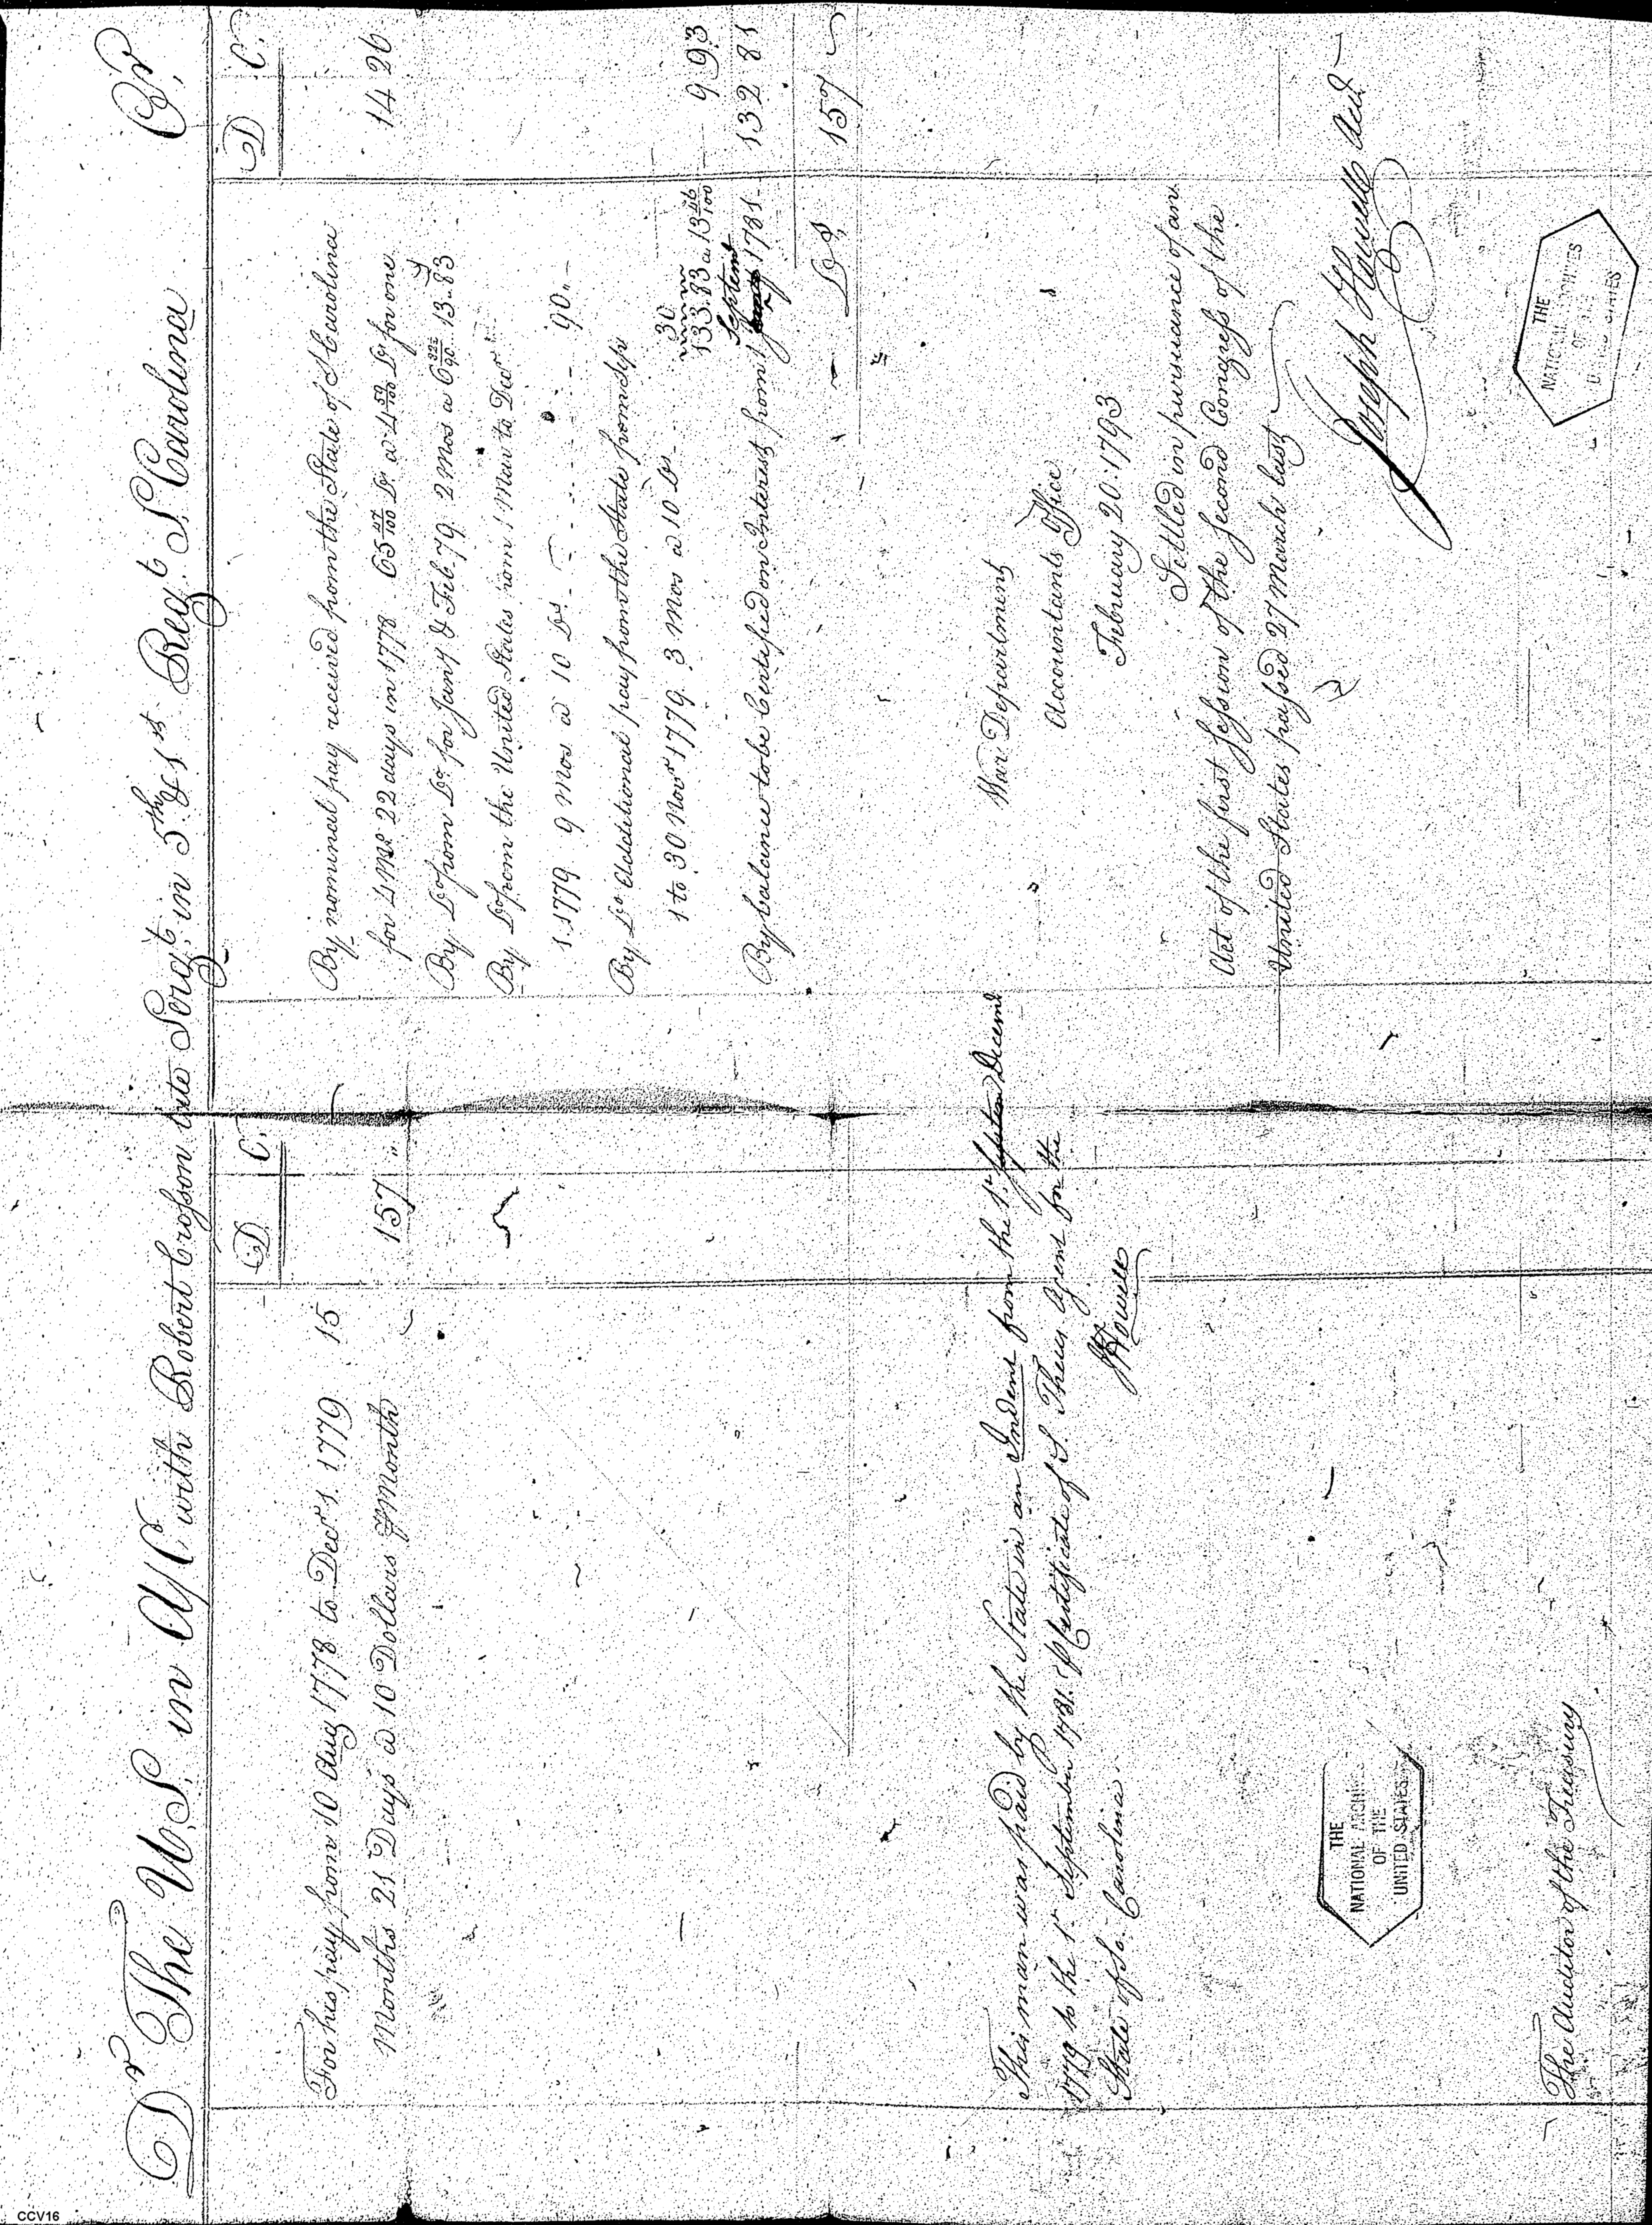 Dr The U.S. in A/C with Robert Crosson late Sergt. in 5th & 1st Regt S. Carolina Cr.
D C.
For his pay from 10 Aug 1778 to Decr 1. 1779 15
Months 21 Days a 10 Dollars p Month 157 "
This man was paid by the State in an Indent from the 1st Decemr
1779 to the 1st September 1781. p Certificate of S. Theus Agent for the
State of So. Carolina.
J Howell
THE
NATIONAL ARCHIVES
OF THE
UNITED STATES
The Auditor of the Treasury
D C.
By nominal pay received from the State of S Carolina
for 4 Mos 22 days in 1778 65 47/100 Drs a 4 59/100 Drs for one 14 26
By Do from Do for Jany & Feb. 79. 2 Mos a 6 13.83
By Do from the United States from 1 Mar to Decr
1 1779 9 Mos a 10 Drs 90..
By Do Additional pay from the State from Sep
1 to 30 Novr 1779 3 Mos a 10 Drs 30
133.83 a 13 46/100 9 93
By balance to be Certified on Interest from 1 Septemr 1781 132 81
Drs 157
War Department
Accountants Office
February 20. 1793
Settled in pursuance of an
Act of the first Session of the Second Congress of the
United States passed 27 March last
Joseph Howell Acct
THE
NATIONAL ARCHIVES
OF THE
UNITED STATES
CCV16